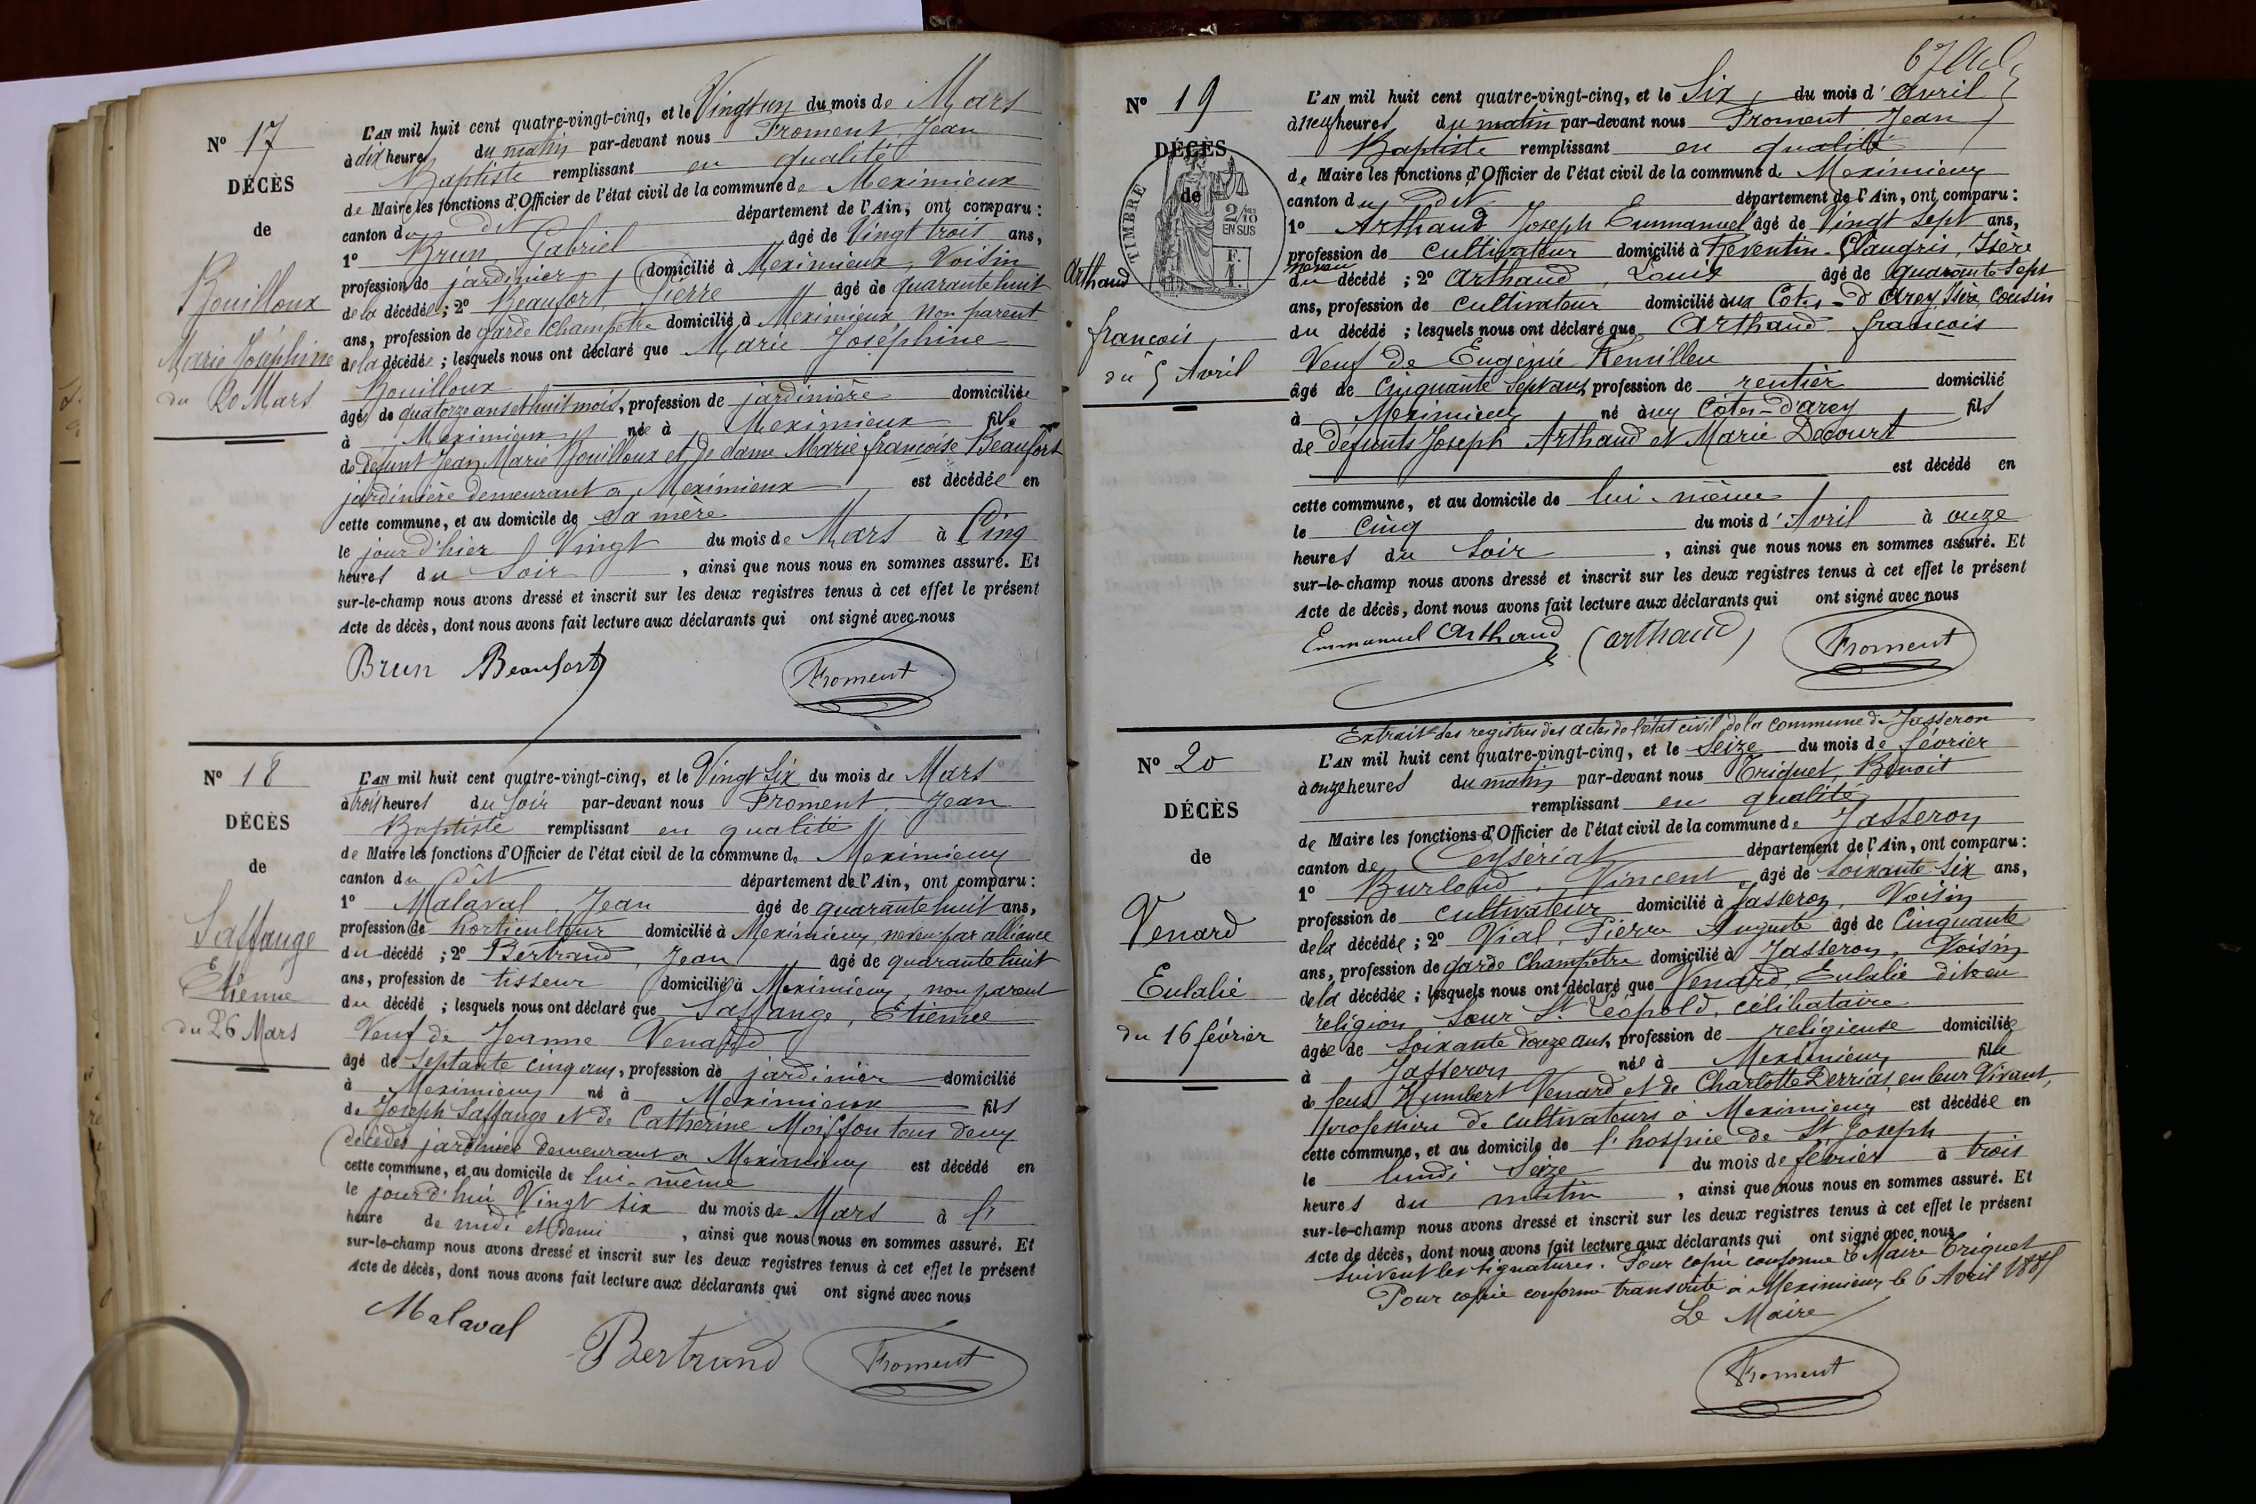 N° 17
DÉCÈS
de
Bouilloux
Marie Joséphine
du 20 Mars
L'AN mil huit cent quatre-vingt-cinq, et le Vingt un du mois de Mars
à dix heures du matin par-devant nous Froment, Jean
Baptiste remplissant en qualité
de Maire les fonctions d'Officier de l'état civil de la commune de Meximieux
canton du dit département de l'Ain, ont comparu :
1° Brun, Gabriel âgé de Vingt trois ans,
profession de jardinier domicilié à Meximieux, Voisin
de la décédée ; 2° Beaufort, Pierre âgé de quarante huit
ans, profession de garde champêtre domicilié à Meximieux non parent
de la décédée ; lesquels nous ont déclaré que Marie Joséphine
Bouilloux
âgée de quatorze ans et huit mois, profession de jardinière domiciliée
à Meximieux née à Meximieux fille
de défunt Jean Marie Bouilloux et de dame Marie françoise Beaufort
jardinière demeurant à Meximieux est décédée en
cette commune, et au domicile de sa mère
le jour d'hier Vingt du mois de Mars à Cinq
heures du Soir , ainsi que nous nous en sommes assuré. Et
sur-le-champ nous avons dressé et inscrit sur les deux registres tenus à cet effet le présent
Acte de décès, dont nous avons fait lecture aux déclarants qui ont signé avec nous
Brun Beaufort Froment
N° 18
DÉCÈS
de
Saffange
Etienne
du 26 Mars
L'AN mil huit cent quatre-vingt-cinq, et le Vingt Six du mois de Mars
à trois heures du Soir par-devant nous Froment, Jean
Baptiste remplissant en qualité
de Maire les fonctions d'Officier de l'état civil de la commune de Meximieux
canton du dit département de l'Ain, ont comparu :
1° Malaval, Jean âgé de quarante huit ans,
profession de horticulteur domicilié à Meximieux, neveu par alliance
du décédé ; 2° Bertrand, Jean âgé de quarante huit
ans, profession de tisseur domicilié à Meximieux, non parent
du décédé ; lesquels nous ont déclaré que Saffange, Etienne
Veuf de Jeanne Venard
âgé de septante cinq ans, profession de jardinier domicilié
à Meximieux né à Meximieux fils
de Joseph Saffange et de Catherine Moisson tous deux
décédés jardinier demeurant à Meximieux est décédé en
cette commune, et au domicile de lui-même
le jour d'hui Vingt six du mois de Mars à l'
heure de midi et demi , ainsi que nous nous en sommes assuré. Et
sur-le-champ nous avons dressé et inscrit sur les deux registres tenus à cet effet le présent
Acte de décès, dont nous avons fait lecture aux déclarants qui ont signé avec nous
Malaval Bertrand Froment
N° 19
DÉCÈS
de
TIMBRE
2/10
EN SUS
Arthaud
françois
du 5 Avril
L'AN mil huit cent quatre-vingt-cinq, et le Six du mois d'Avril
à neuf heures du matin par-devant nous Froment, Jean
Baptiste remplissant en qualité
de Maire les fonctions d'Officier de l'état civil de la commune de Meximieux
canton du Dit département de l'Ain, ont comparu :
1° Arthaud Joseph Emmanuel âgé de Vingt Sept ans,
profession de cultivateur domicilié à Reventin-Vaugris, Isère
neveu
du décédé ; 2° Arthaud, Louis âgé de quarante sept
ans, profession de cultivateur domicilié aux Côtes-d'Arey Isère, Cousin
du décédé ; lesquels nous ont déclaré que Arthaud françois
Veuf de Eugénie
âgé de Cinquante Sept ans, profession de rentier domicilié
à Meximieux né aux Côtes-d'arey fils
de défunts Joseph Arthaud et Marie Decourt
est décédé en
cette commune, et au domicile de lui-même
le cinq du mois d'Avril à onze
heures du Soir , ainsi que nous nous en sommes assuré. Et
sur-le-champ nous avons dressé et inscrit sur les deux registres tenus à cet effet le présent
Acte de décès, dont nous avons fait lecture aux déclarants qui ont signé avec nous
Emmanuel Arthaud Arthaud Froment
Extrait des registres des actes de l'état civil de la commune de Jasseron
N° 20
DÉCÈS
de
Venard
Eulalie
du 16 février
L'AN mil huit cent quatre-vingt-cinq, et le Seize du mois de février
à onze heures du matin par-devant nous Triquet, Benoit
remplissant en qualité
de Maire les fonctions d'Officier de l'état civil de la commune de Jasseron
canton de Ceysériat département de l'Ain, ont comparu :
1° Burloud, Vincent âgé de Soixante Six ans,
profession de cultivateur domicilié à Jasseron, Voisin
de la décédée ; 2° Vial, Pierre Auguste âgé de Cinquante
ans, profession de garde champêtre domicilié à Jasseron, Voisin
de la décédée ; lesquels nous ont déclaré que Venard, Eulalie dite en
religion Sœur St Léopold, célibataire
âgée de Soixante douze ans, profession de religieuse domiciliée
à Jasseron née à Meximieux fille
de feus Humbert Venard et de Charlotte Derrias en leur Vivant,
profession de cultivateurs à Meximieux est décédée en
cette commune, et au domicile de l'hospice de St Joseph
le lundi Seize du mois de février à trois
heures du matin , ainsi que nous nous en sommes assuré. Et
sur-le-champ nous avons dressé et inscrit sur les deux registres tenus à cet effet le présent
Acte de décès, dont nous avons fait lecture aux déclarants qui ont signé avec nous
Suivent les signatures. Pour copie conforme le Maire Triquet
Pour copie conforme transcrite à Meximieux le 6 Avril 1885
Le Maire
Froment